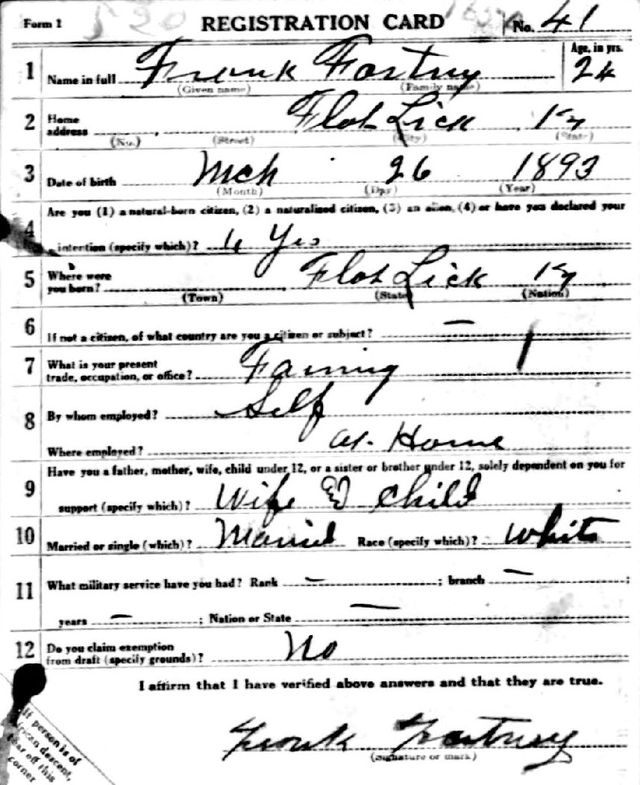 Form 1 REGISTRATION CARD No. 41
1 Name in full Frank Fortney Age, in yrs. 24
(Given name) (Family name)
2 Home address Flat Lick Ky
(No.) (Street) (City) (State)
3 Date of birth Mch 26 1893
(Month) (Day) (Year)
Are you (1) a natural-born citizen, (2) a naturalized citizen, (3) an alien, (4) or have you declared your
4 intention (specify which)? Yes
5 Where were you born? Flat Lick Ky
(Town) (State) (Nation)
6 If not a citizen, of what country are you a citizen or subject? —
7 What is your present trade, occupation, or office? Faming
8 By whom employed? Self
Where employed? at Home
Have you a father, mother, wife, child under 12, or a sister or brother under 12, solely dependent on you for
9 support (specify which)? Wife & child
10 Married or single (which)? Married Race (specify which)? White
11 What military service have you had? Rank — ; branch — ;
years — ; Nation or State —
12 Do you claim exemption from draft (specify grounds)? No
I affirm that I have verified above answers and that they are true.
Frank Fortney
(Signature or mark)
If person is of
African descent,
tear off this
corner